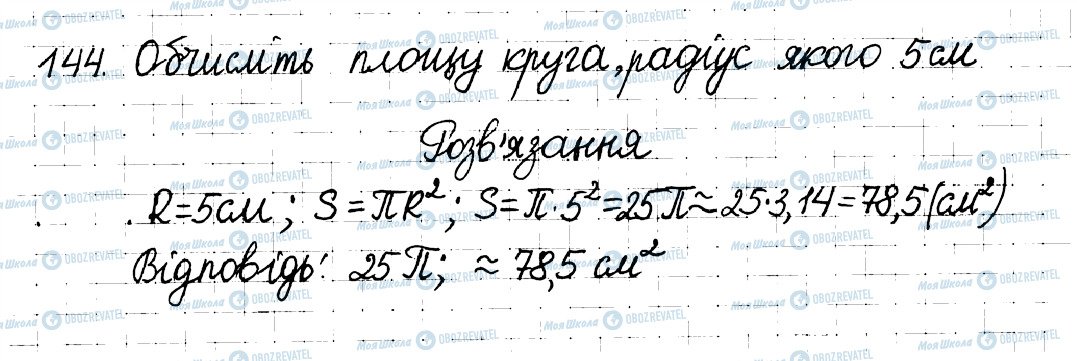 144. Обчисліть площу круга, радіус якого 5 см
Розв'язання
R=5см; S=πR²; S=π·5²=25π≈25·3,14=78,5(см²)
Відповідь: 25π; ≈ 78,5 см²